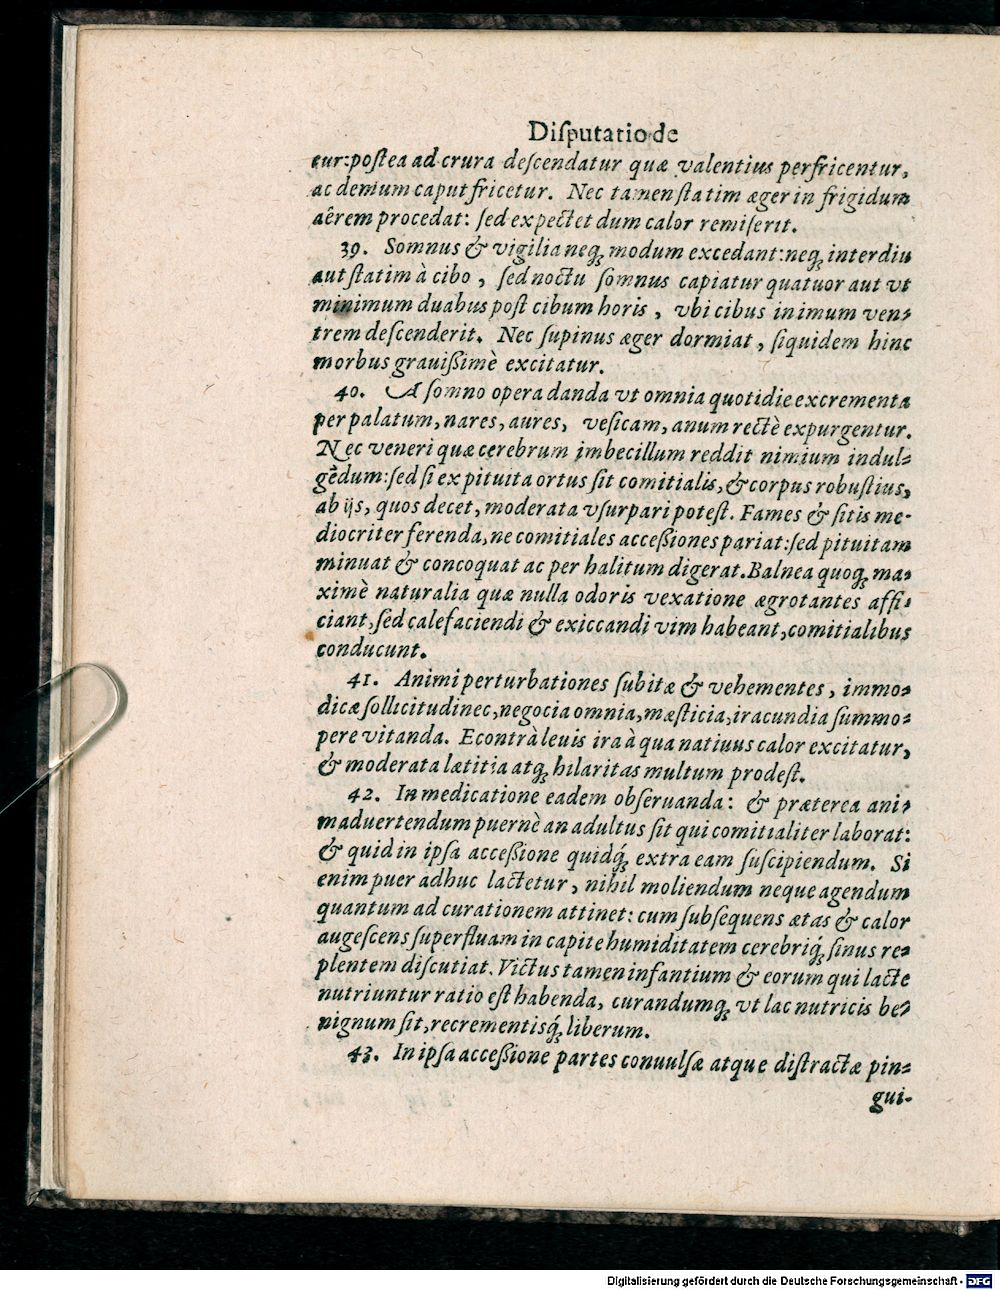 Diſputatio de
tur: poſtea ad crura deſcendatur quæ valentius perfricentur,
ac demum caput fricetur. Nec tamen ſtatim æger in frigidum
aêrem procedat: ſed expectet dum calor remiſerit.
39. Somnus & vigilia neq; modum excedant: neq; interdiu
aut ſtatim à cibo, ſed noctu ſomnus capiatur quatuor aut vt
minimum duabus poſt cibum horis, vbi cibus in imum ven-
trem deſcenderit. Nec ſupinus æger dormiat, ſiquidem hinc
morbus grauißimè excitatur.
40. A ſomno opera danda vt omnia quotidie excrementa
per palatum, nares, aures, veſicam, anum rectè expurgentur.
Nec veneri quæ cerebrum imbecillum reddit nimium indul-
gẽdum: ſed ſi ex pituita ortus ſit comitialis, & corpus robuſtius,
ab ijs, quos decet, moderata vſurpari poteſt. Fames & ſitis me-
diocriter ferenda, ne comitiales acceßiones pariat: ſed pituitam
minuat & concoquat ac per halitum digerat. Balnea quoq; ma-
ximè naturalia quæ nulla odoris vexatione ægrotantes affi-
ciant, ſed calefaciendi & exiccandi vim habeant, comitialibus
conducunt.
41. Animi perturbationes ſubitæ & vehementes, immo-
dicæ ſollicitudinec, negocia omnia, mæſticia, iracundia ſummo-
pere vitanda. Econtrà leuis ira à qua natiuus calor excitatur,
& moderata lætitia atq; hilaritas multum prodeſt.
42. In medicatione eadem obſeruanda: & præterea ani-
maduertendum puernè an adultus ſit qui comitialiter laborat:
& quid in ipſa acceßione quidq́; extra eam ſuſcipiendum. Si
enim puer adhuc lactetur, nihil moliendum neque agendum
quantum ad curationem attinet: cum ſubſequens ætas & calor
augeſcens ſuperfluam in capite humiditatem cerebriq́; ſinus re-
plentem diſcutiat. Victus tamen infantium & eorum qui lacte
nutriuntur ratio eſt habenda, curandumq; vt lac nutricis be-
nignum ſit, recrementisq́; liberum.
43. In ipſa acceßione partes conuulſæ atque diſtractæ pin-
gui-
Digitalisierung gefördert durch die Deutsche Forschungsgemeinschaft - DFG